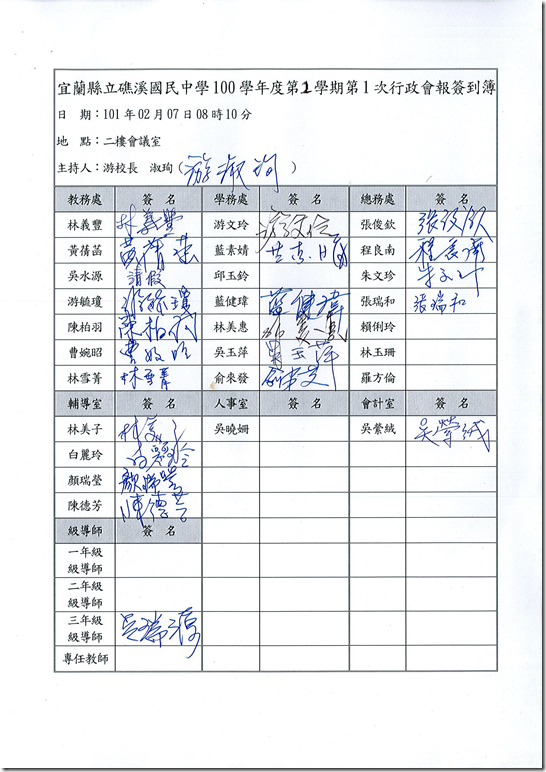 宜蘭縣立礁溪國民中學100學年度第1學期第1次行政會報簽到簿
日　期：101年02月07日08時10分
地　點：二樓會議室
主持人：游校長　淑珣（游淑珣）
教務處 簽　名 學務處 簽　名 總務處 簽　名
林義豐 林義豐 游文玲 張俊欽 張俊欽
黃蒨菡 藍素婧 程良南 程良南
吳水源 請假 邱玉鈴 朱文珍
游毓瓊 游毓瓊 藍健瑋 藍健瑋 張瑞和 張瑞和
陳柏羽 陳柏羽 林美惠 賴俐玲
曹婉昭 吳玉萍 吳玉萍 林玉珊
林雪菁 林雪菁 俞來發 羅方倫
輔導室 簽　名 人事室 簽　名 會計室 簽　名
林美子 吳曉姍 吳縈絨 吳縈絨
白麗玲 白麗玲
顏瑞瑩 顏瑞瑩
陳德芳 陳德芳
級導師 簽　名
一年級
級導師
二年級
級導師
三年級
級導師 吳瑞源
專任教師